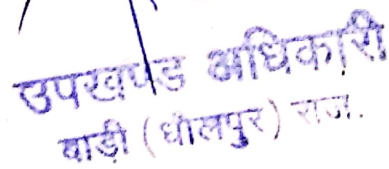 उपखण्ड अधिकारी
बाड़ी (धौलपुर) राज.